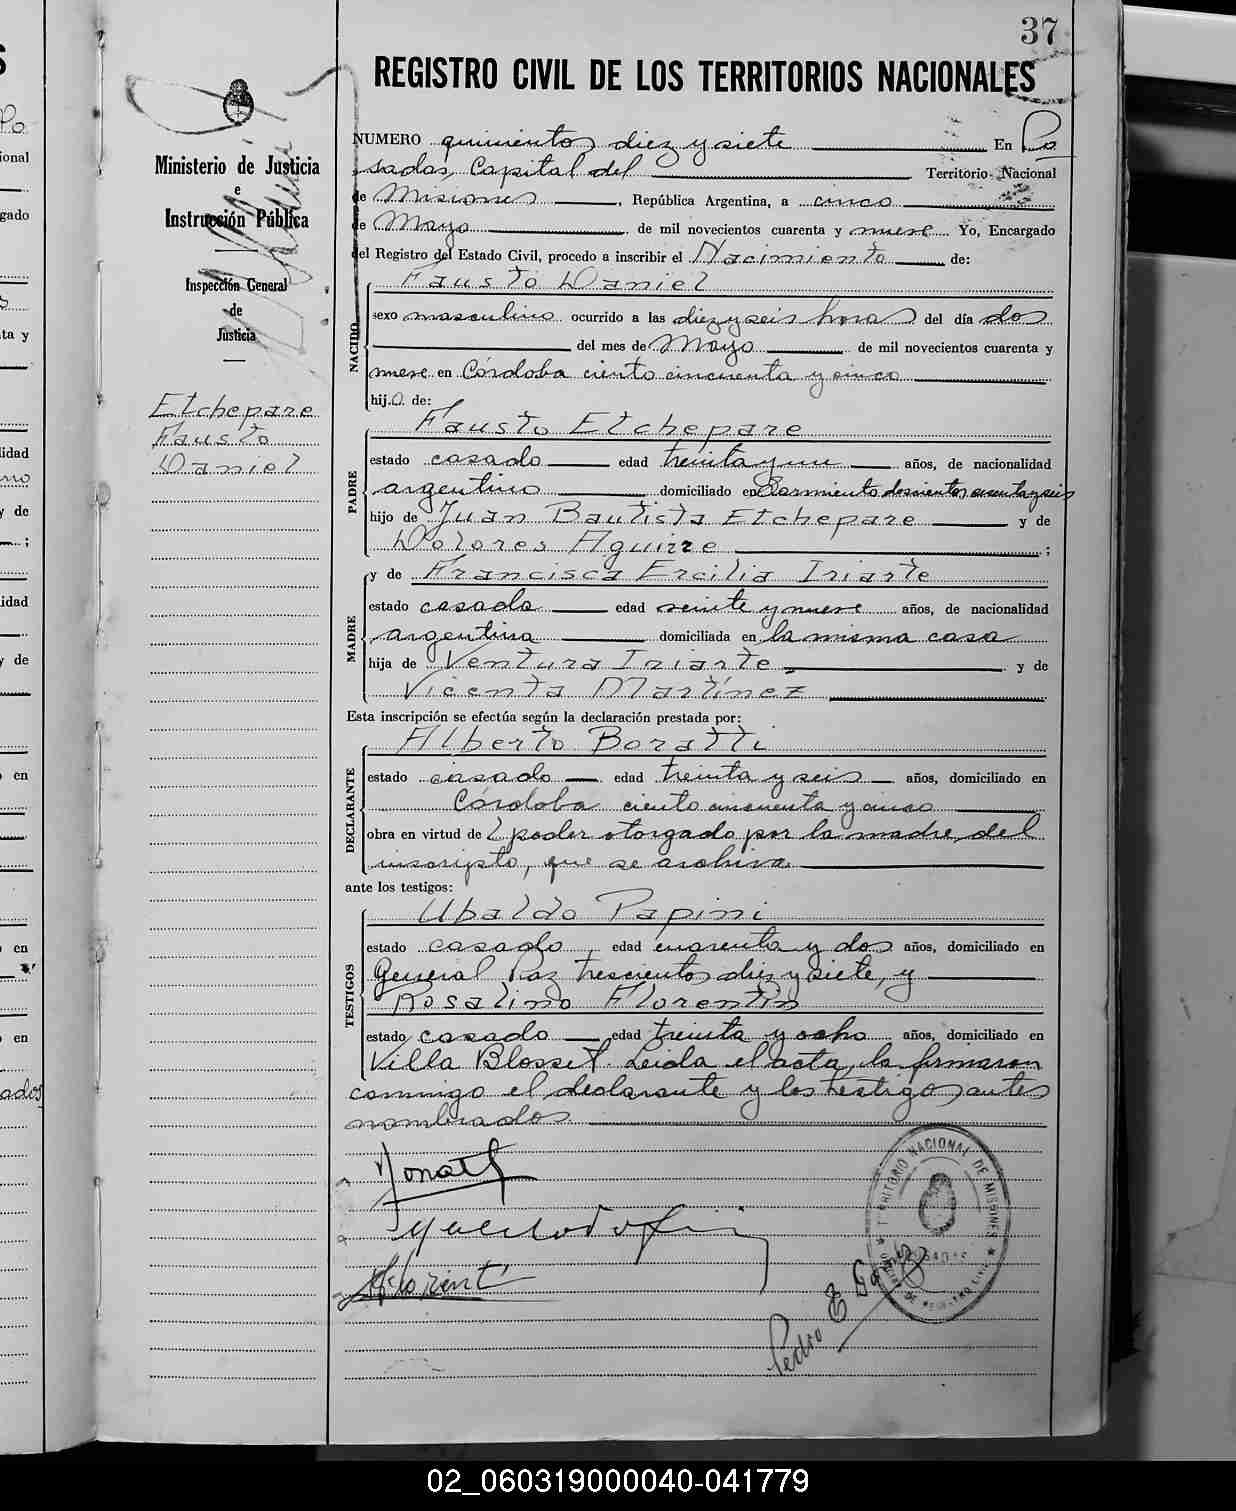 37
REGISTRO CIVIL DE LOS TERRITORIOS NACIONALES
Ministerio de Justicia
e
Instrucción Pública
Inspección General
de
Justicia
Etchepare
Fausto
Daniel
NUMERO quinientos diez y siete En Po
sadas, Capital del Territorio Nacional
de Misiones, República Argentina, a cinco
de Mayo de mil novecientos cuarenta y nueve Yo, Encargado
del Registro del Estado Civil, procedo a inscribir el Nacimiento de:
Fausto Daniel
NACIDO
sexo masculino ocurrido a las diez y seis horas del día dos
del mes de Mayo de mil novecientos cuarenta y
nueve en Córdoba ciento cincuenta y cinco
hijo de:
Fausto Etchepare
PADRE
estado casado edad treinta y un años, de nacionalidad
argentino domiciliado en Sarmiento doscientos
hijo de Juan Bautista Etchepare y de
Dolores Aguirre ;
y de Francisca Ercilia Iriarte
MADRE
estado casada edad veinte y nueve años, de nacionalidad
argentina domiciliada en la misma casa
hija de Ventura Iriarte y de
Vicenta Martínez
Esta inscripción se efectúa según la declaración prestada por:
Alberto Boratti
DECLARANTE
estado casado edad treinta y seis años, domiciliado en
Córdoba ciento cincuenta y cinco
obra en virtud de poder otorgado por la madre del
inscripto, que se archiva.
ante los testigos:
Ubaldo Papini
TESTIGOS
estado casado, edad cuarenta y dos años, domiciliado en
General Paz trescientos diez y siete, y
Rosalino Florentin
estado casado edad treinta y ocho años, domiciliado en
Villa Blosset. Leida el acta, la firmaron
conmigo el declarante y los testigos antes
nombrados
TERRITORIO NACIONAL DE MISIONES
POSADAS
Pedro E
02_060319000040-041779